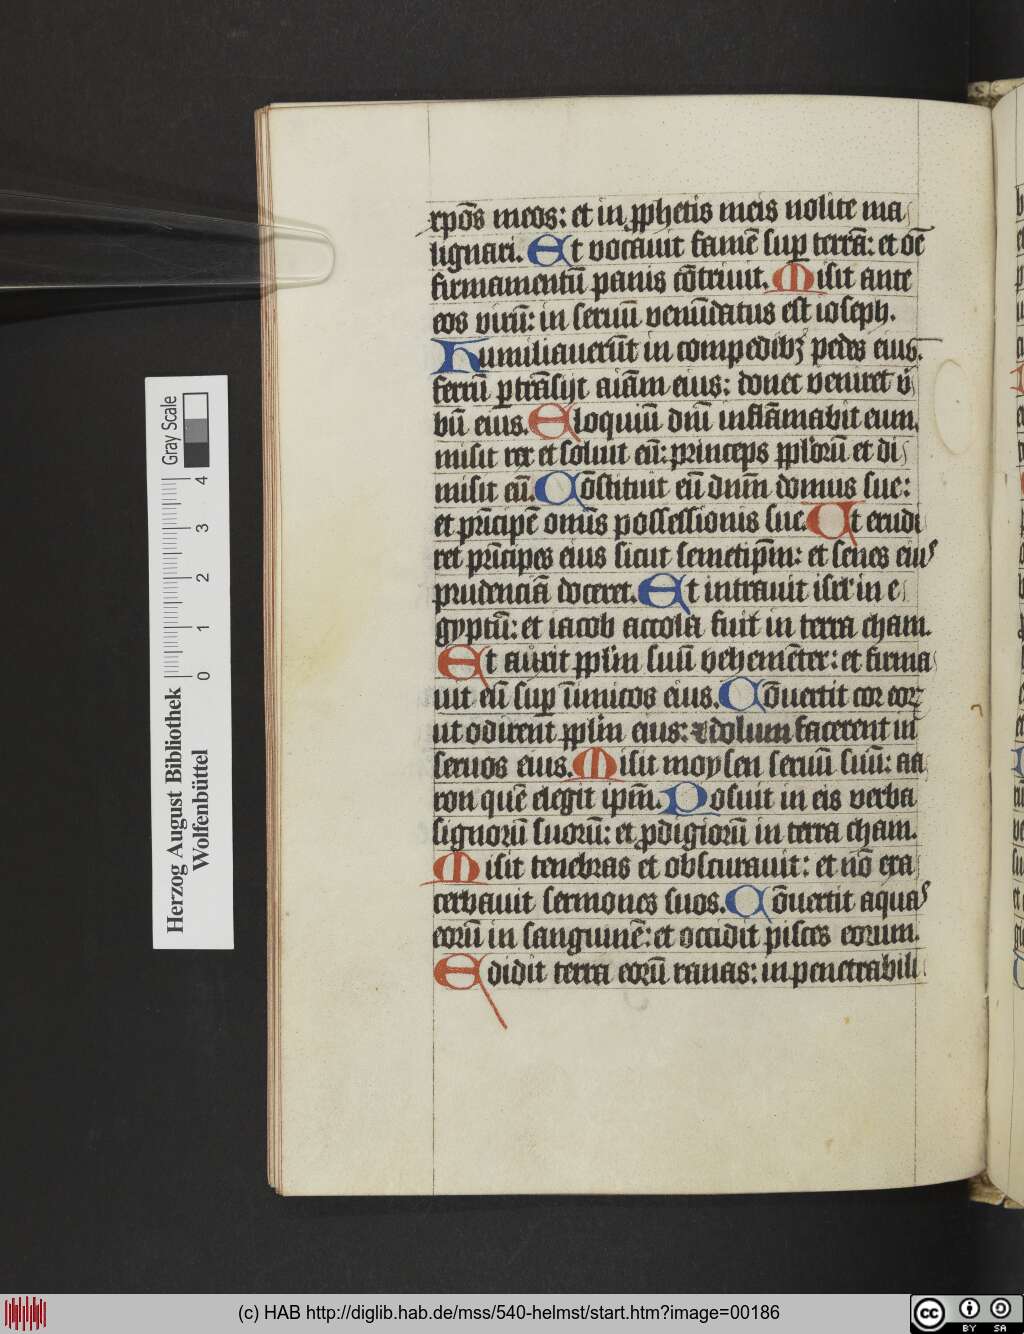 xpōs meos: et in ꝓphetis meis nolite ma
lignari. Et vocauit famē suꝑ terrā: et oē
firmamentū panis cōtriuit. Misit ante
eos virū: in seruū venūdatus est ioseph.
Humiliauerūt in compedibꝫ pedes eius.
ferrū ꝑtrāsijt aīam eius: donec veniret v̄
bū eius. Eloquiū dnī inflāmabit eum.
misit rex et soluit eū: princeps ppl̄orū et di
misit eū. Cōstituit eū dnm̄ domus sue:
et prīcipē omīs possessionis sue. Ut erudi
ret prīcipes eius sicut semetip̄m: et senes eius
prudenciā doceret. Et intrauit isrl' in e
gyptū: et iacob accola fuit in terra cham.
Et auxit ppl̄m suū vehemēter: et firma
uit eū suꝑ īimicos eius. Cōuertit cor eoꝝ
ut odirent ppl̄m eius: et dolum facerent in
seruos eius. Misit moysen seruū suū: aa
ron quē elegit ipm̄. Posuit in eis verba
signorū suorū: et ꝓdigiorū in terra cham.
Misit tenebras et obscurauit: et nō exa
cerbauit sermones suos. Cōuertit aquas
eorū in sanguinē: et occidit pisces eorum.
Edidit terra eorū ranas: in penetrabili
Gray Scale
0 1 2 3 4
Herzog August Bibliothek
Wolfenbüttel
(c) HAB http://diglib.hab.de/mss/540-helmst/start.htm?image=00186
cc BY SA